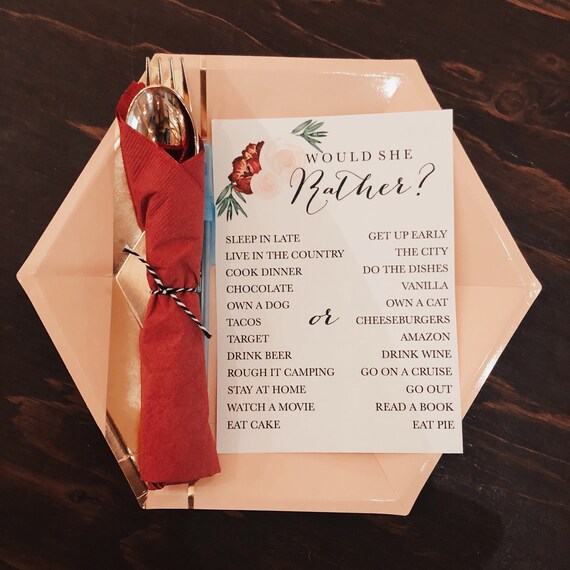 WOULD SHE
Rather?
SLEEP IN LATE GET UP EARLY
LIVE IN THE COUNTRY THE CITY
COOK DINNER DO THE DISHES
CHOCOLATE VANILLA
OWN A DOG OWN A CAT
TACOS or CHEESEBURGERS
TARGET AMAZON
DRINK BEER DRINK WINE
ROUGH IT CAMPING GO ON A CRUISE
STAY AT HOME GO OUT
WATCH A MOVIE READ A BOOK
EAT CAKE EAT PIE